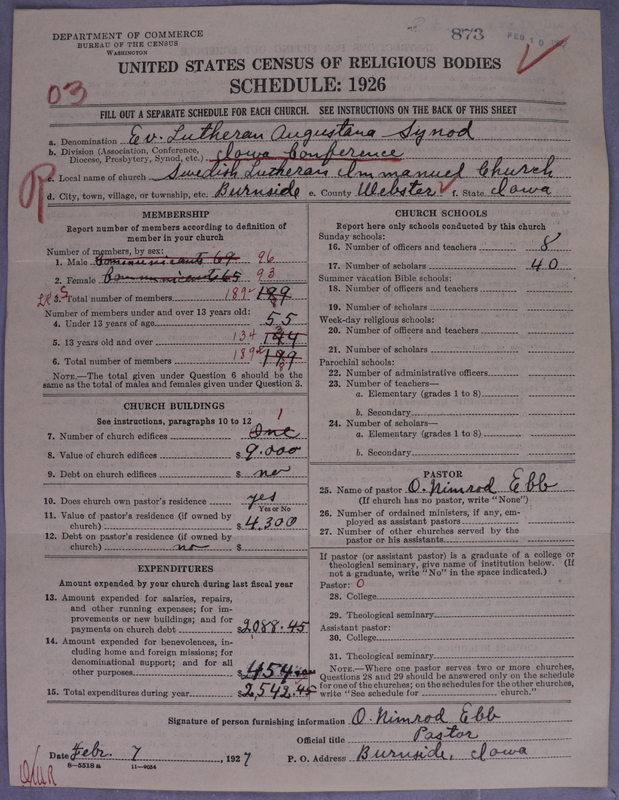 DEPARTMENT OF COMMERCE
BUREAU OF THE CENSUS
WASHINGTON
873
FEB 10
UNITED STATES CENSUS OF RELIGIOUS BODIES
SCHEDULE: 1926
03
FILL OUT A SEPARATE SCHEDULE FOR EACH CHURCH. SEE INSTRUCTIONS ON THE BACK OF THIS SHEET
a. Denomination Ev. Lutheran Augustana Synod
b. Division (Association, Conference, Diocese, Presbytery, Synod, etc.) Iowa Conference
c. Local name of church Swedish Lutheran Immanuel Church
d. City, town, village, or township, etc. Burnside e. County Webster f. State Iowa
MEMBERSHIP
Report number of members according to definition of
member in your church
Number of members, by sex:
1. Male Communicants 69 96
2. Female Communicants 65 93
3. Total number of members 189 199
Number of members under and over 13 years old:
4. Under 13 years of age 55
5. 13 years old and over 134 144
6. Total number of members 189 199
NOTE.—The total given under Question 6 should be the
same as the total of males and females given under Question 3.
CHURCH BUILDINGS
See instructions, paragraphs 10 to 12
1
7. Number of church edifices One
8. Value of church edifices $ 9.000
9. Debt on church edifices $ no
10. Does church own pastor's residence yes
Yes or No
11. Value of pastor's residence (if owned by
church) $ 4.300
12. Debt on pastor's residence (if owned by
church) no $
EXPENDITURES
Amount expended by your church during last fiscal year
13. Amount expended for salaries, repairs,
and other running expenses; for im-
provements or new buildings; and for
payments on church debt $ 2088.45
14. Amount expended for benevolences, in-
cluding home and foreign missions; for
denominational support; and for all
other purposes $ 454.00
15. Total expenditures during year $ 2,542.45
CHURCH SCHOOLS
Report here only schools conducted by this church
Sunday schools:
16. Number of officers and teachers 8
17. Number of scholars 40
Summer vacation Bible schools:
18. Number of officers and teachers
19. Number of scholars
Week-day religious schools:
20. Number of officers and teachers
21. Number of scholars
Parochial schools:
22. Number of administrative officers
23. Number of teachers—
a. Elementary (grades 1 to 8)
b. Secondary
24. Number of scholars—
a. Elementary (grades 1 to 8)
b. Secondary
PASTOR
25. Name of pastor O. Nimrod Ebb
(If church has no pastor, write "None")
26. Number of ordained ministers, if any, em-
ployed as assistant pastors
27. Number of other churches served by the
pastor or his assistants
If pastor (or assistant pastor) is a graduate of a college or
theological seminary, give name of institution below. (If
not a graduate, write "No" in the space indicated.)
Pastor: O
28. College
29. Theological seminary
Assistant pastor:
30. College
31. Theological seminary
NOTE.—Where one pastor serves two or more churches,
Questions 28 and 29 should be answered only on the schedule
for one of the churches; on the schedules for the other churches,
write "See schedule for church."
Signature of person furnishing information O. Nimrod Ebb
Official title Pastor
Date Febr. 7, 1927 P. O. Address Burnside, Iowa
8—5318 a 11—9054